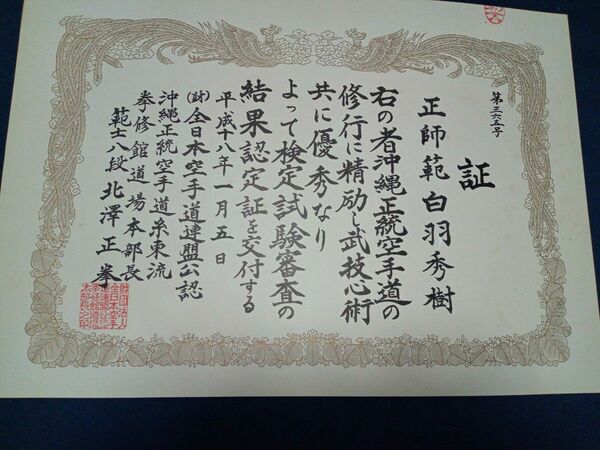 第三六五号
証
正師範白羽秀樹
右の者沖縄正統空手道の
修行に精励し武技心術
共に優秀なり
よって検定試験審査の
結果認定証を交付する
平成十八年一月五日
(財)全日本空手道連盟公認
沖縄正統空手道糸東流
拳修館道場本部長
範士八段北澤正拳